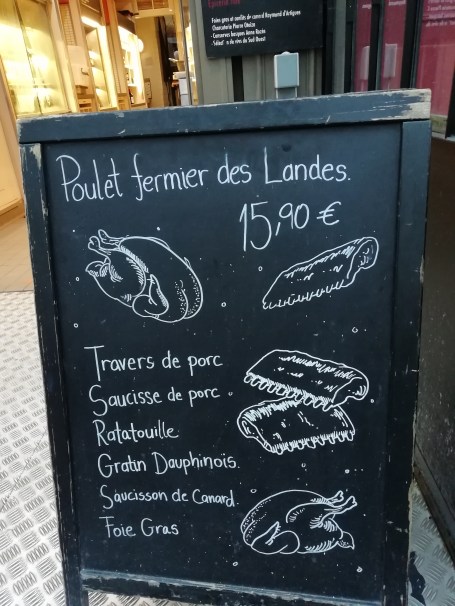 Foies gras et confits de canard Raymond d'Artigues
Charcuterie Pierre Oteiza
- Conserves basques Anne Rozès
du Sud Ouest
Poulet fermier des Landes.
15,90 €
Travers de porc
Saucisse de porc
Ratatouille
Gratin Dauphinois.
Saucisson de Canard.
Foie Gras